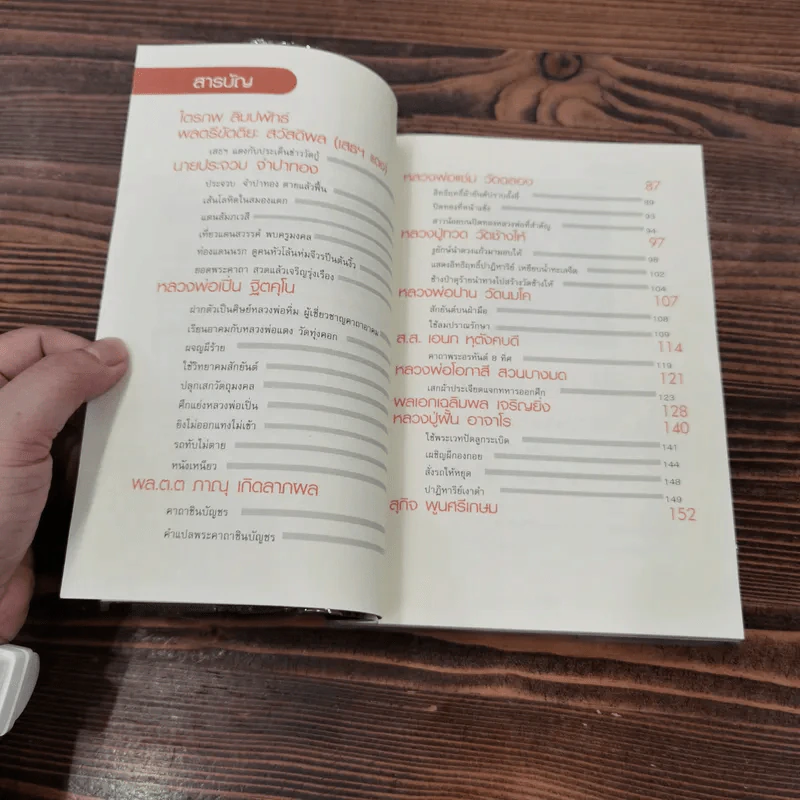 สารบัญ
ไตรภพ ลิมปพัทธ์
พลตรีขัตติยะ สวัสดิผล (เสธฯ แดง)
เสธฯ แดงกับประเด็นข่าววัตถุ
นายประจวบ จำปาทอง
ประจวบ จำปาทอง ตายแล้วฟื้น
เส้นโลหิตในสมองแตก
แดนสัมภเวสี
เที่ยวแดนสวรรค์ พบครูมงคล
ท่องแดนนรก ดูคนหัวโล้นห่มจีวรปีนต้นงิ้ว
ยอดพระคาถา สวดแล้วเจริญรุ่งเรือง
หลวงพ่อเปิ่น ฐิตคุโน
ฝากตัวเป็นศิษย์หลวงพ่อหิ่ม ผู้เชี่ยวชาญคาถาอาคม
เรียนอาคมกับหลวงพ่อแดง วัดทุ่งคอก
ผจญผีร้าย
ใช้วิทยาคมสักยันต์
ปลุกเสกวัตถุมงคล
ศึกแย่งหลวงพ่อเปิ่น
ยิงไม่ออกแทงไม่เข้า
รถทับไม่ตาย
หนังเหนียว
พล.ต.ต ภาณุ เกิดลาภผล
คาถาชินบัญชร
คำแปลพระคาถาชินบัญชร
หลวงพ่อแช่ม วัดฉลอง 87
อิทธิฤทธิ์ผ้ายันต์ปราบอั้งยี่ 89
ปิดทองที่หน้าแข้ง 93
สาวน้อยบนปิดทองหลวงพ่อที่สำคัญ 94
หลวงปู่ทวด วัดช้างให้ 97
งูยักษ์นำดวงแก้วมาหอบให้ 98
แสดงอิทธิฤทธิ์ปาฏิหาริย์ เหยียบน้ำทะเลจืด 102
ช้างป่าดุร้ายนำทางไปสร้างวัดช้างให้ 104
หลวงพ่อปาน วัดนมโค 107
สักยันต์บนฝ่ามือ 108
ใช้ลมปราณรักษา 109
ส.ส. เอนก หุตังคบดี 114
คาถาพระอรหันต์ 8 ทิศ 119
หลวงพ่อโอภาสี สวนบางมด 121
เสกผ้าประเจียดแจกทหารออกศึก 123
พลเอกเฉลิมพล เจริญยิ่ง 128
หลวงปู่ฝั้น อาจาโร 140
ใช้พระเวทปัดลูกระเบิด 141
เผชิญผีกองกอย 144
สั่งรถให้หยุด 148
ปาฏิหาริย์เงาดำ 149
สุกิจ พูนศรีเกษม 152